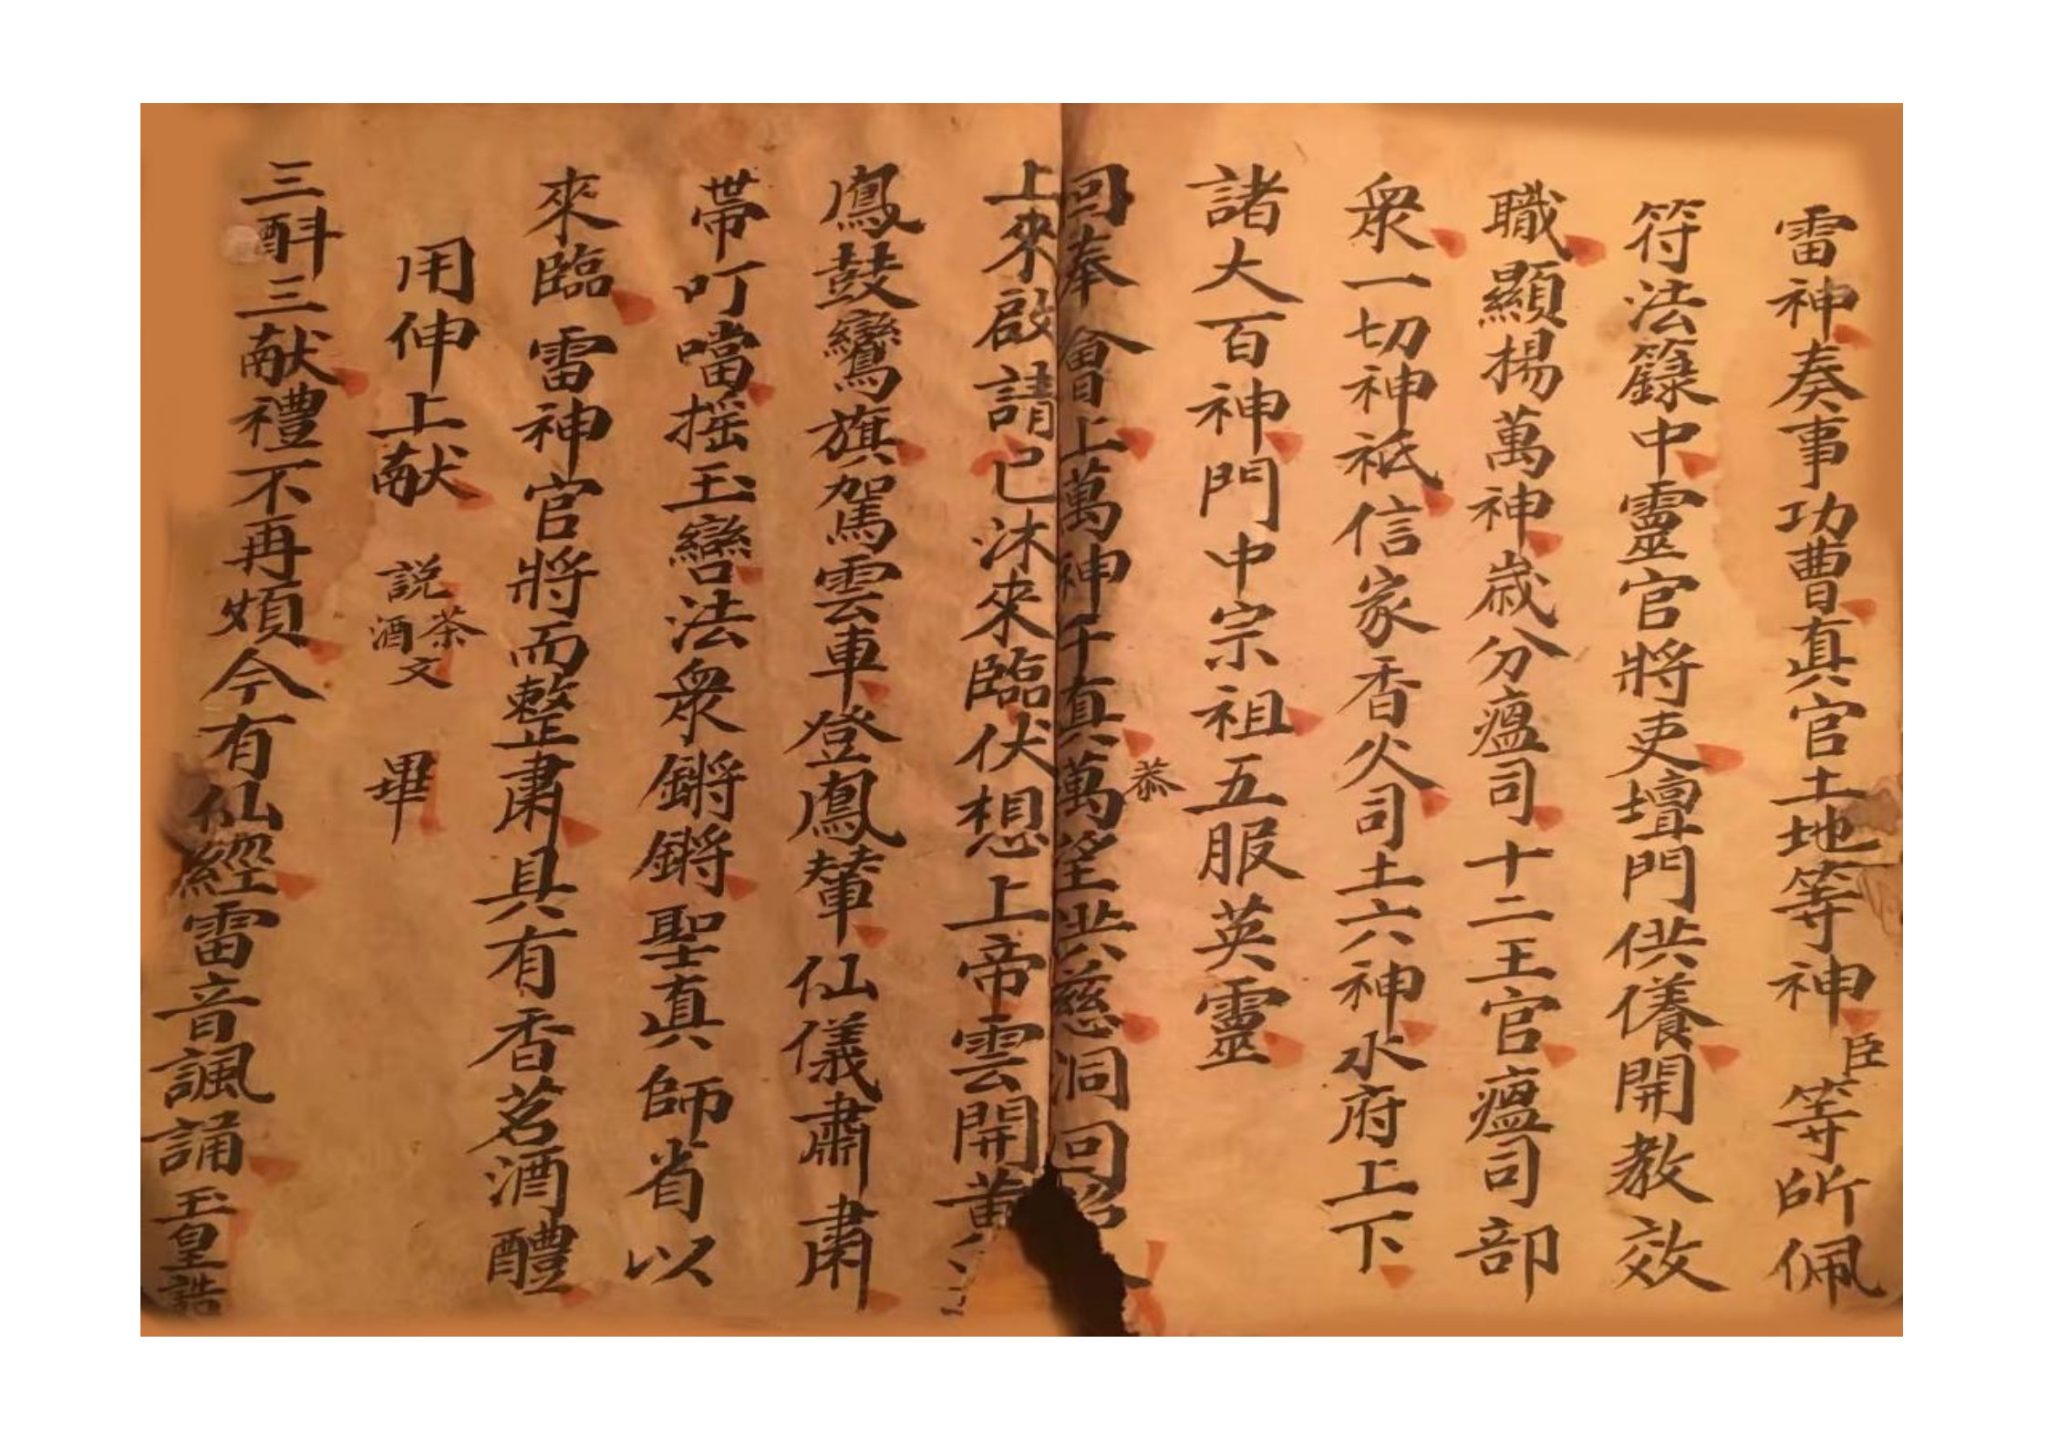 雷神奏事功曹真官土地等神臣等所佩
符法籙中靈官將吏壇門供養開教效
職顯揚萬神歲分瘟司十二王官瘟司部
衆一切神祇信家香火司土六神水府上下
諸大百神門中宗祖五服英靈
回奉會上萬神千真萬望洪慈洞回
恭
上來啟請已沐來臨伏想上帝雲開黄
鳳鼓鸞旗駕雲車登鳳輦仙儀肅肅
帶叮噹摇玉轡法衆鏘鏘聖真師省以
來臨雷神官將而整肅具有香茗酒醴
用伸上献説茶酒文畢
三酙三献禮不再煩今有仙經雷音諷誦玉皇誥